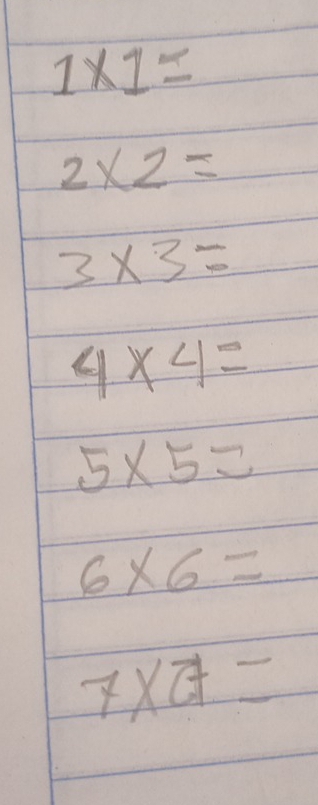 1×1=
2×2=
3×3=
4×4=
5×5=
6×6=
7×7=